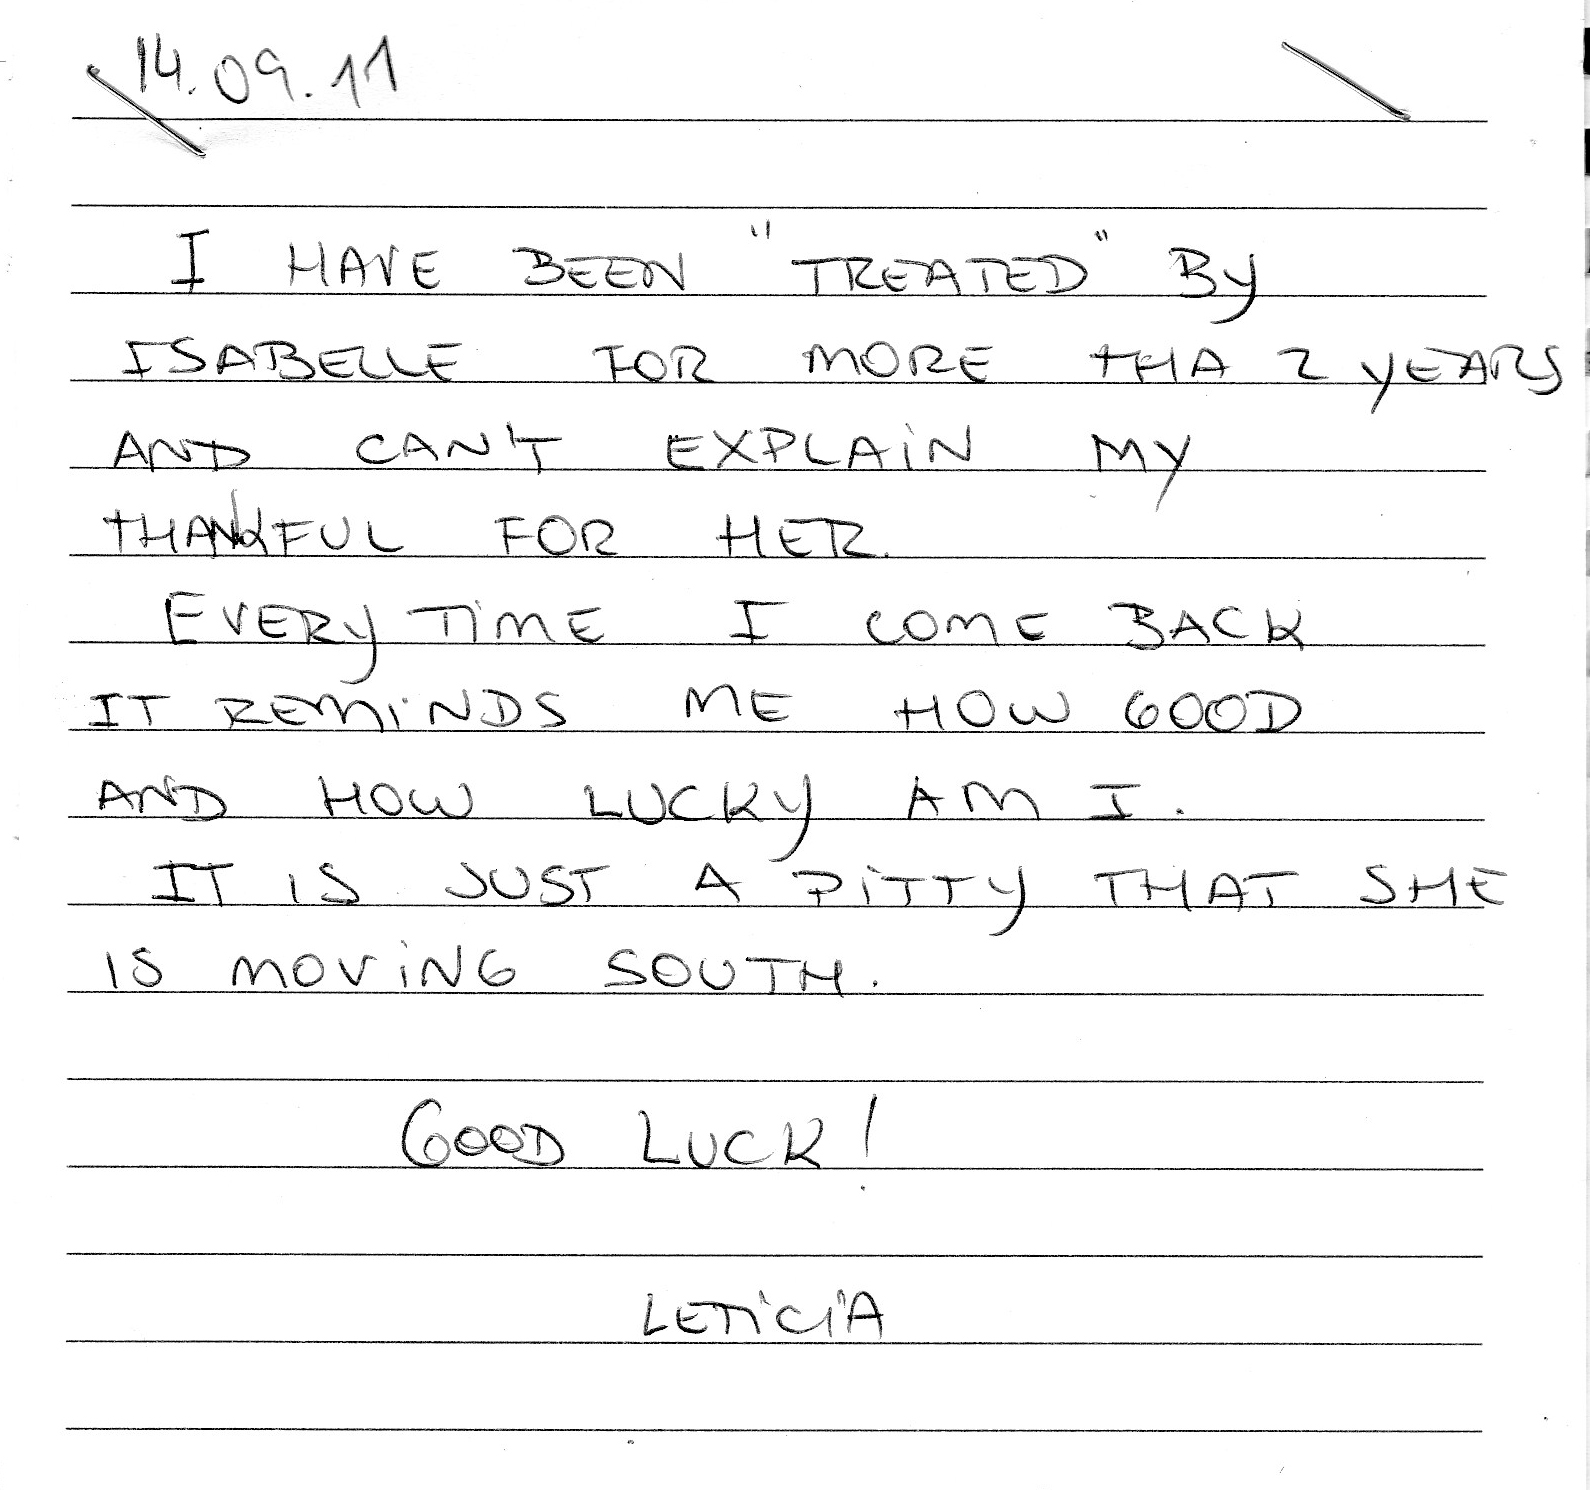 14.09.11
I HAVE BEEN "TREATED" BY
ISABELLE FOR MORE THA 2 YEARS
AND CAN'T EXPLAIN MY
THANKFUL FOR HER.
EVERY TIME I COME BACK
IT REMINDS ME HOW GOOD
AND HOW LUCKY AM I.
IT IS JUST A PITTY THAT SHE
IS MOVING SOUTH.
GOOD LUCK!
LETICIA